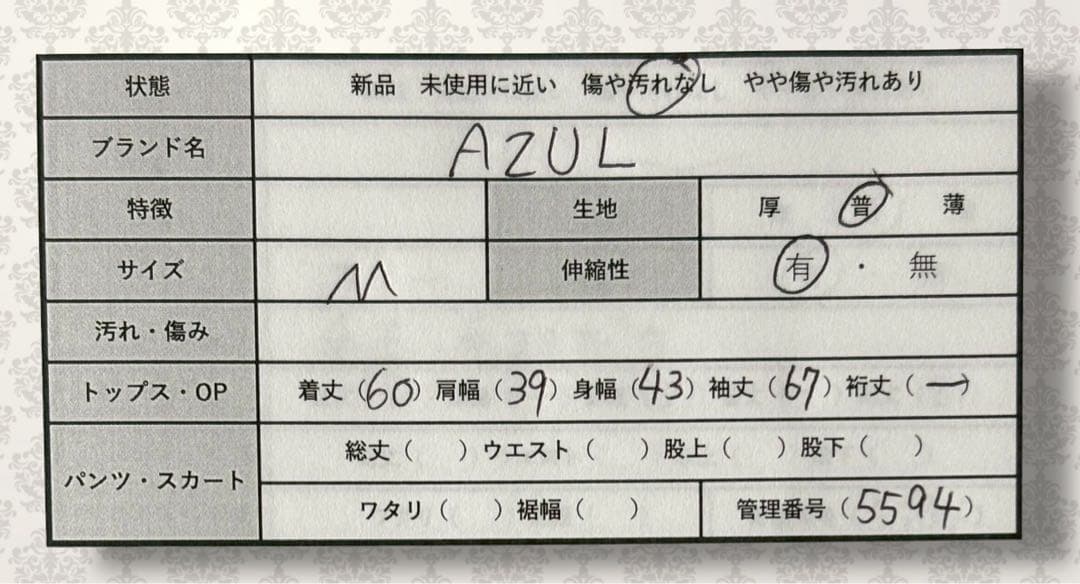 状態 新品 未使用に近い 傷や汚れなし やや傷や汚れあり
ブランド名 AZUL
特徴 生地 厚 普 薄
サイズ M 伸縮性 有・無
汚れ・傷み
トップス・OP 着丈（60）肩幅（39）身幅（43）袖丈（67）裄丈（ー）
パンツ・スカート
総丈（ ）ウエスト（ ）股上（ ）股下（ ）
ワタリ（ ）裾幅（ ） 管理番号（5594）